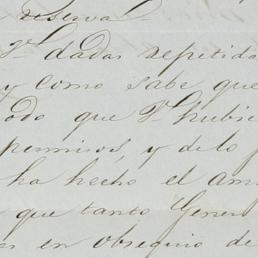 reserva.
Vd. dadas repetido
y como sabe que
odo que Vd. hubie
permisos, y de lo
ha hecho el am
que tanto Gener
es en obsequio de